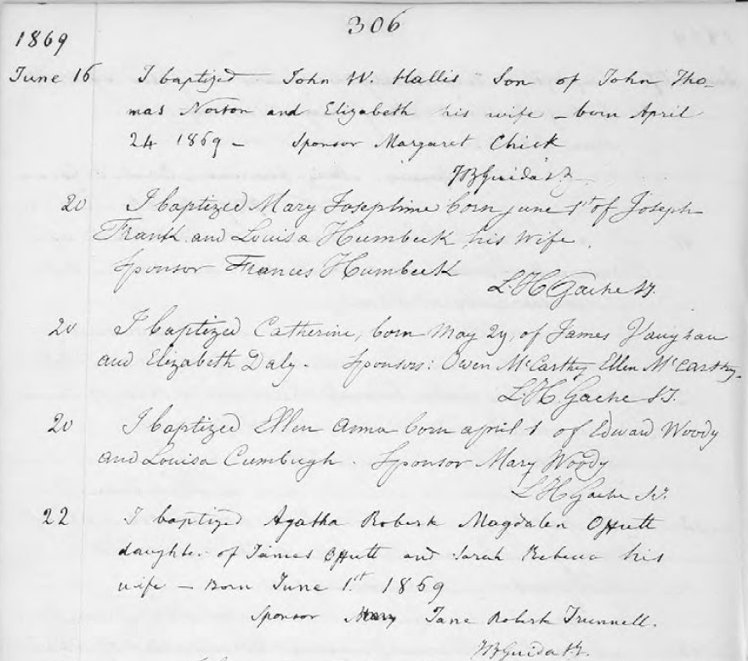 306
1869
June 16 I baptized John W. Hallis Son of John Tho-
mas Norton and Elizabeth his wife - born April
24 1869 - Sponsor Margaret Chick
Guida
20 I baptized Mary Josephine born june 1st of Joseph
Frank and Louisa Humbeck his wife.
Sponsor Francis Humbeck
L. H. Gache S.J.
20 I baptized Catherine, born May 29, of James Vaughan
and Elizabeth Daly. Sponsors: Owen McCarthey Ellen McCarthey.
L. H. Gache S.J.
20 I baptized Ellen Anna born april 1 of Edward Woody
and Louisa Cumbugh. Sponsor Mary Woody
L. H. Gache S.J.
22 I baptized Agatha Robert Magdalen Offutt
daughter of James Offutt and Sarah Rebecca his
wife - Born June 1st 1869
Sponsor Mary Jane Robert Trunnell.
Guida S.J.